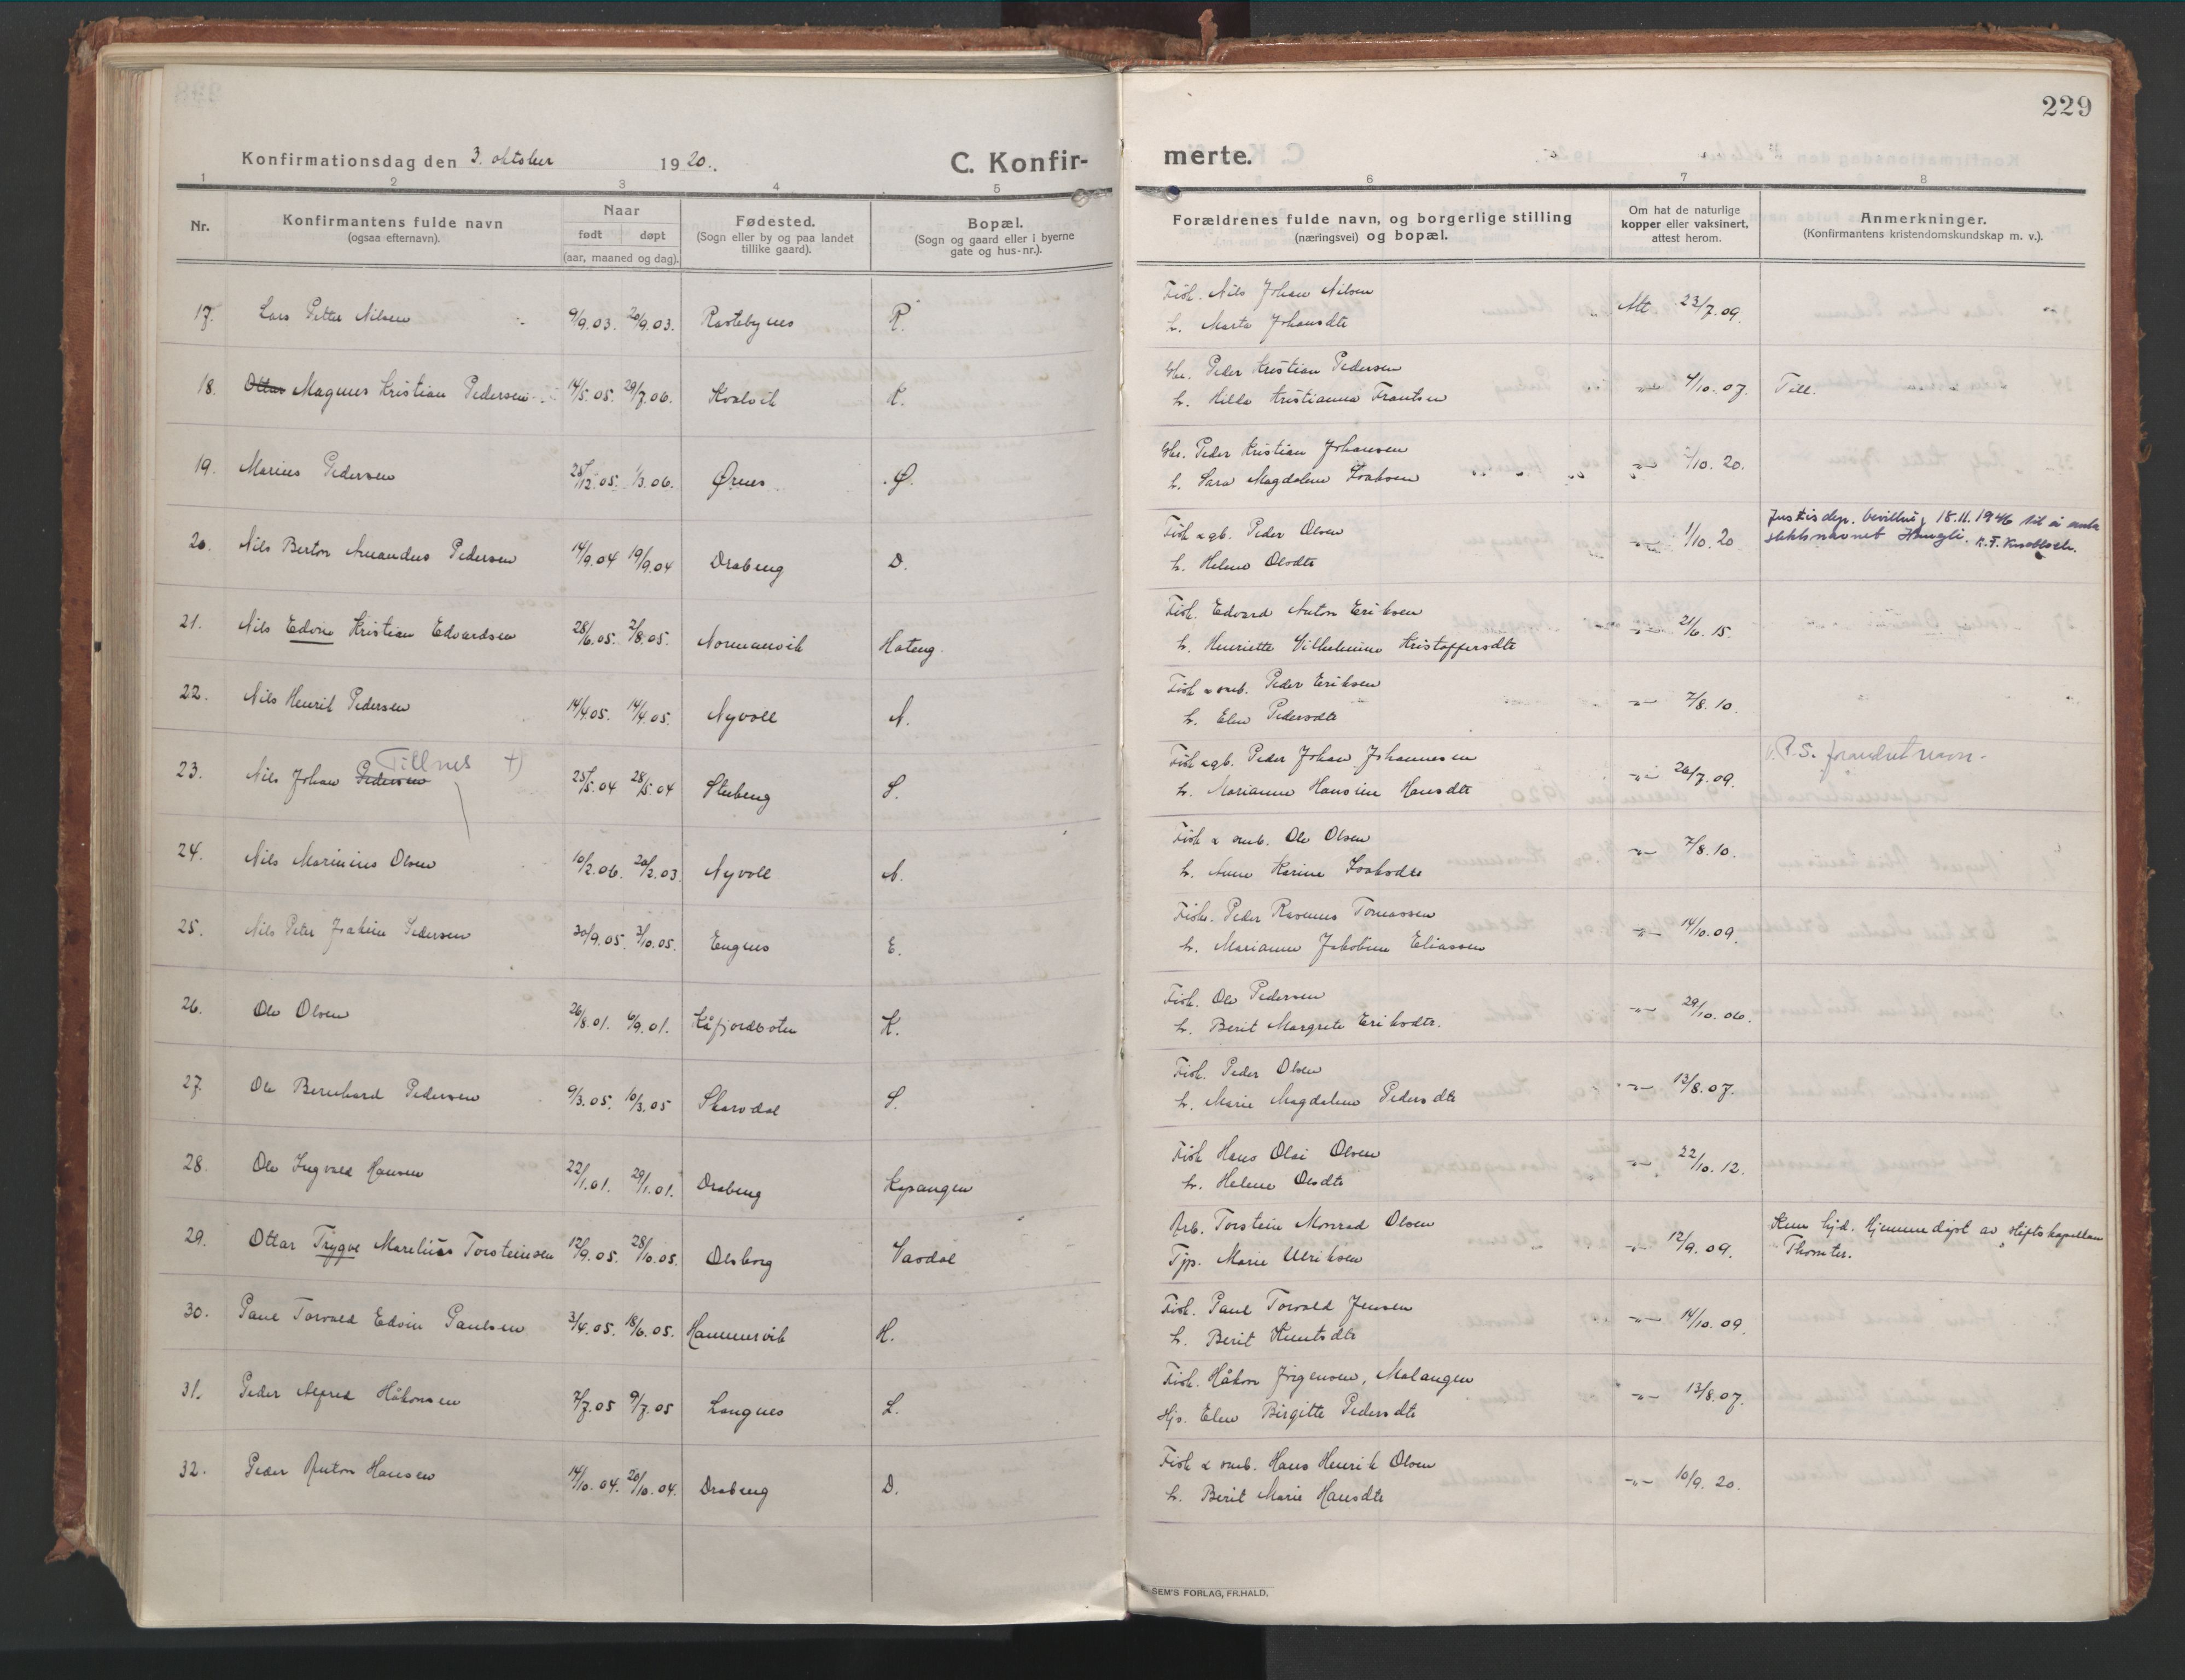 229
Konfirmationsdag den 3. oktober 1920. C. Konfir-merte.
1 2 3 4 5 6 7 8
Nr.
Konfirmantens fulde navn
(ogsaa efternavn).
Naar
født døpt
(aar, maaned og dag).
Fødested.
(Sogn eller by og paa landet
tillike gaard).
Bopæl.
(Sogn og gaard eller i byerne
gate og hus-nr.).
Forældrenes fulde navn, og borgerlige stilling
(næringsvei) og bopæl.
Om hat de naturlige
kopper eller vaksinert,
attest herom.
Anmerkninger.
(Konfirmantens kristendomskundskap m. v.).
17. Lars Petter Nilsen 9/9.03. 20/9.03. Rastebynes R. Fisk. Nils Johan Nilsen Att 23/7.09.
h. Marta Johansdtr
18. Ottar Magnus Kristian Pedersen 14/5.05. 29/7.06. Kvalvik K. Gbr. Peder Kristian Pedersen -"- 4/10.07. Till.
h. Hilda Kristianna Frantsen
19. Marius Pedersen 28/12.05. 1/3.06. Ørnes Ø. Gbr. Peder Kristian Johansen -"- /10.20.
h. Sara Magdalena Isaksen
20. Nils Berton Amandus Pedersen 14/9.04 19/9.04 Drabeng D. Fisk & gb. Peder Olsen -"- 1/10.20 Justisdep. bevilling 18.11.1946 til å anta
h. Helene Olsdtr slektsnavnet
21. Nils Edvin Kristian Edvardsen 28/6.05. 2/8.05. Normanvik Hateng Fisk. Edvard Anton Eriksen -"- 21/6.15.
h. Henriette Vilhelmine Kristoffersdtr
22. Nils Henrik Pedersen 14/4.05. 14/4.05. Nyvoll N. Fisk & omb. Peder Eriksen -"- 7/8.10.
h. Elen Pedersdtr
23. Nils Johan Pedersen Tillnes +) 25/5.04 28/5.04 Stubeng S. Fisk & gb. Peder Johan Johannesen -"- 26/7.09. forandret navn.
h. Marianne Hansine Hansdtr
24. Nils Marinius Olsen 10/2.06. 20/2.03. Nyvoll N. Fisk & omb. Ole Olsen -"- 7/8.10.
h. Anne Karine Isaksdtr
25. Nils Peter Joakim Pedersen 30/9.05. 3/10.05. Engnes E. Fisk. Peder Rasmus Tomassen -"- 14/10.09.
h. Marianne Jakobine Eliassen
26. Ole Olsen 26/8.01. 6/9.01. Kåfjordbotn K. Fisk. Ole Pedersen -"- 29/10.06.
h. Berit Margrete Eriksdtr.
27. Ole Bernhard Pedersen 9/3.05. 10/3.05 Skarsdal S. Fisk. Peder Olsen -"- 13/8.07.
h. Marie Magdalene Pedersdtr
28. Ole Ingvald Hansen 22/1.01. 29/1.01. Drabeng Kopangen Fisk Hans Olai Olsen -"- 22/10.12.
h. Helene Olsdtr
29. Ottar Trygve Marelius Torsteinsen 12/9.05. 28/10.05. Olsborg Vasdal Arb. Torstein Monrad Olsen -"- 12/9.09. Kun hjd. Hjemmedøpt av stiftskapellan
Tjp. Marie Ulriksen Thomter.
30. Paul Torvald Edvin Paulsen 3/4.05. 18/6.05. Hammervik H. Fisk. Paul Torvald Jensen -"- 14/10.09.
h. Berit Knutsdtr
31. Peder Alfred Håkonsen 7/7.05 9/7.05 Langnes L. Fisk. Håkon Jørgensen, Malangen -"- 13/8.07.
Hjs. Elen Birgitte Pedersdtr
32. Peder Anton Hansen 14/10.04. 20/10.04. Drabeng D. Fisk & omb. Hans Henrik Olsen -"- 10/9.20.
h. Berit Marie Hansdtr
SEM'S FORLAG, FR.HALD.